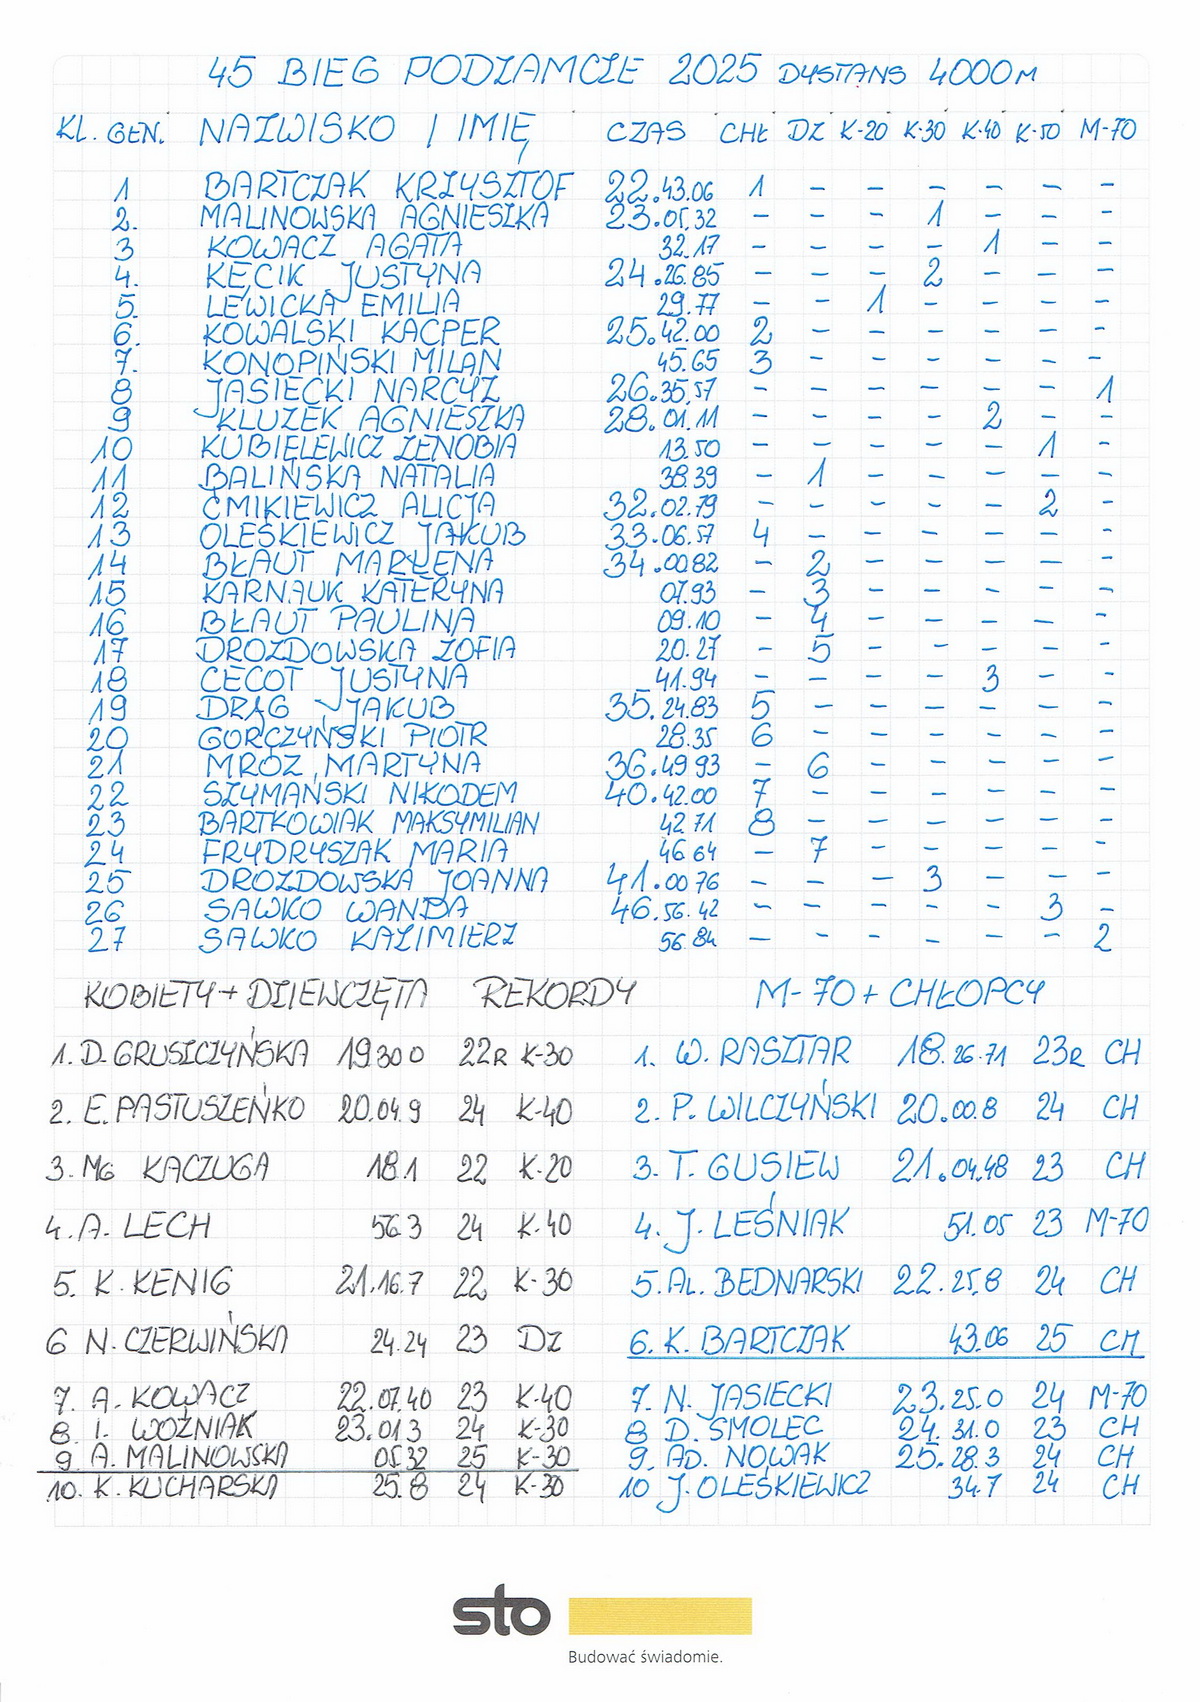 45 BIEG PODZAMCZE 2025 DYSTANS 4000M
KL. GEN. NAZWISKO / IMIĘ CZAS CHŁ DZ K-20 K-30 K-40 K-50 M-70
1 BARTCZAK KRZYSZTOF 22.43.06 1 - - - - - -
2. MALINOWSKA AGNIESZKA 23.05.32 - - - 1 - - -
3 KOWACZ AGATA 32.17 - - - - 1 - -
4. KĘCIK JUSTYNA 24.26.85 - - - 2 - - -
5. LEWICKA EMILIA 29.77 - - 1 - - - -
6. KOWALSKI KACPER 25.42.00 2 - - - - - -
7. KONOPIŃSKI MILAN 45.65 3 - - - - - -
8 JASIECKI NARCYZ 26.35.57 - - - - - - 1
9 KLUZEK AGNIESZKA 28.01.11 - - - - 2 - -
10 KUBIELEWICZ ZENOBIA 13.50 - - - - - 1 -
11 BALIŃSKA NATALIA 38.39 - 1 - - - - -
12 ĆMIKIEWICZ ALICJA 32.02.79 - - - - - 2 -
13 OLEŚKIEWICZ JAKUB 33.06.57 4 - - - - - -
14 BŁAUT MARLENA 34.00.82 - 2 - - - - -
15 KARNAUK KATERYNA 07.93 - 3 - - - - -
16 BŁAUT PAULINA 09.10 - 4 - - - - -
17 DROZDOWSKA ZOFIA 20.27 - 5 - - - - -
18 CECOT JUSTYNA 41.94 - - - - 3 - -
19 DRĄG JAKUB 35.24.83 5 - - - - - -
20 GORCZYŃSKI PIOTR 28.35 6 - - - - - -
21 MRÓZ MARTYNA 36.49 93 - 6 - - - - -
22 SZYMAŃSKI NIKODEM 40.42.00 7 - - - - - -
23 BARTKOWIAK MAKSYMILIAN 42 71 8 - - - - - -
24 FRYDRYSZAK MARIA 46 64 - 7 - - - - -
25 DROZDOWSKA JOANNA 41.00 76 - - - 3 - - -
26 SAWKO WANDA 46.56.42 - - - - - 3 -
27 SAWKO KAZIMIERZ 56 84 - - - - - - 2
KOBIETY + DZIEWCZĘTA REKORDY M-70 + CHŁOPCY
1. D. GRUSZCZYŃSKA 19 30 0 22R K-30 1. W. RASZTAR 18.26.71 23R CH
2. E. PASTUSZEŃKO 20.04.9 24 K-40 2. P. WILCZYŃSKI 20.00.8 24 CH
3. MG KACZUGA 18.1 22 K-20 3. T. GUSIEW 21.04.48 23 CH
4. A. LECH 56 3 24 K-40 4. J. LEŚNIAK 51.05 23 M-70
5. K. KENIG 21.16.7 22 K-30 5. AL. BEDNARSKI 22.25,8 24 CH
6 N. CZERWIŃSKA 24.24 23 DZ 6. K. BARTCZAK 43.06 25 CH
7. A. KOWACZ 22.07.40 23 K-40 7. N. JASIECKI 23.25.0 24 M-70
8. I. WOŹNIAK 23.01 3 24 K-30 8 D. SMOLEC 24.31.0 23 CH
9. A. MALINOWSKA 05.32 25 K-30 9. AD. NOWAK 25.28.3 24 CH
10. K. KUCHARSKA 25.8 24 K-30 10 J. OLEŚKIEWICZ 34.7 24 CH
sto
Budować świadomie.